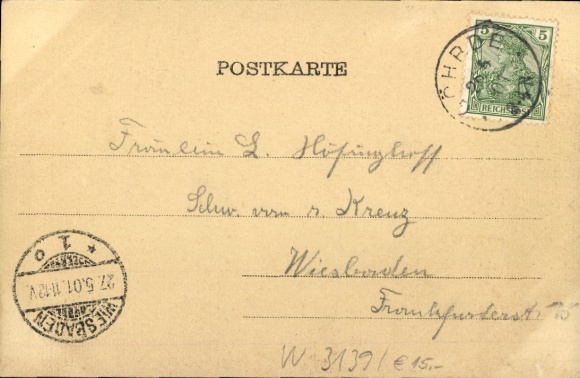 5 5
REICHSPOST
POSTKARTE
Fräulein L. Höfinghoff
Schw. vom r. Kreuz
Wiesbaden
Frankfurterstr. 15
WIESBADEN
27.5.01.11-12V.
* 1 o
W 3139/€15.-